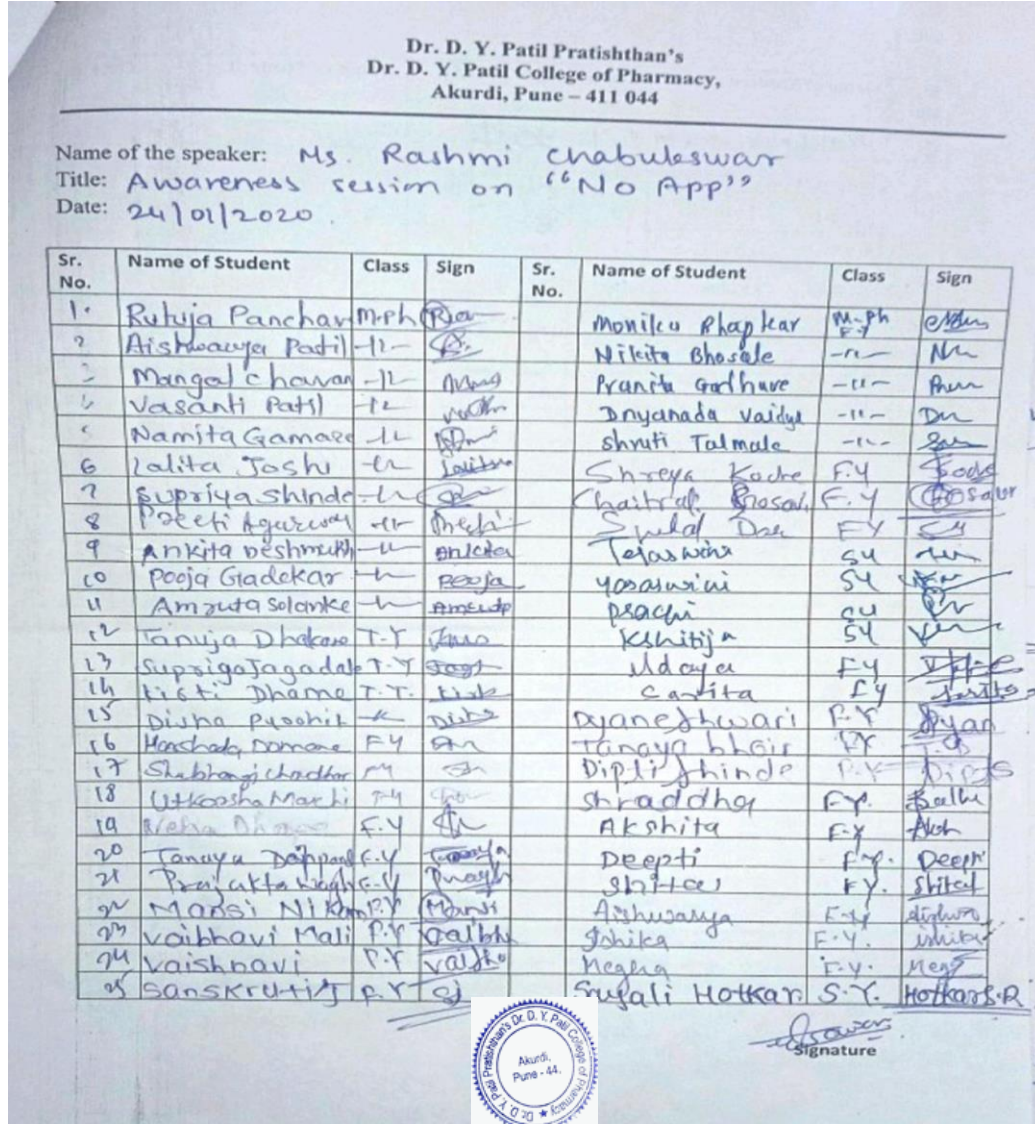 Dr. D. Y. Patil Pratishthan's
Dr. D. Y. Patil College of Pharmacy,
Akurdi, Pune – 411 044
Name of the speaker: Ms. Rashmi Chabukeswar
Title: Awareness session on "No App"
Date: 24/01/2020.
Sr. No. Name of Student Class Sign Sr. No. Name of Student Class Sign
1. Rutuja Panchar M.ph Monika Bhapkar M-Ph F-Y
2 Aishwarya Patil -11- Nikita Bhosale -11-
3 Mangal Chavan -11- Pranita Gadhave -11-
4 Vasanti Patil -11- Dnyanada Vaidya -11-
5 Namita Gamare -11- Shruti Talmale -11-
6 Lalita Joshi -11- Shreya Kodre F.Y
7 Supriya Shinde -11- Chaitrali Bhosale F.Y
8 Preeti Agarwal -11- F Y
9 Ankita Deshmukh -11- Ankita Tejaswini SY
10 Pooja Gadekar -11- Pooja Yasaswini SY
11 Amruta Solanke -11- Prachi SY
12 Tanuja Dhakare T-Y Kshitija SY
13 Supriya Jagadale T-Y Udaya FY
14 Dhame T.Y. Carita FY
15 Disha Purohit Dyaneshwari F.Y
16 FY Tanaya bhoir FY
17 Dipti Shinde F.Y
18 Shraddha F.Y.
19 F.Y Akshita F.Y
20 Tanaya F.Y Deepti F.Y. Deepti
21 Prajakta Wagh F.Y Shital F.Y. Shital
22 Mansi Nikam F.Y Mansi Aishwarya F.Y
23 Vaibhavi Mali F.Y Ishika F.Y. ishika
24 Vaishnavi F.Y Megha F.Y.
25 Sanskruti F.Y Sujali Hotkar S.Y. Hotkar S.R
Signature
Dr. D. Y. Patil Pratishthan's Dr. D. Y. Patil College of Pharmacy
Akurdi,
Pune - 44.